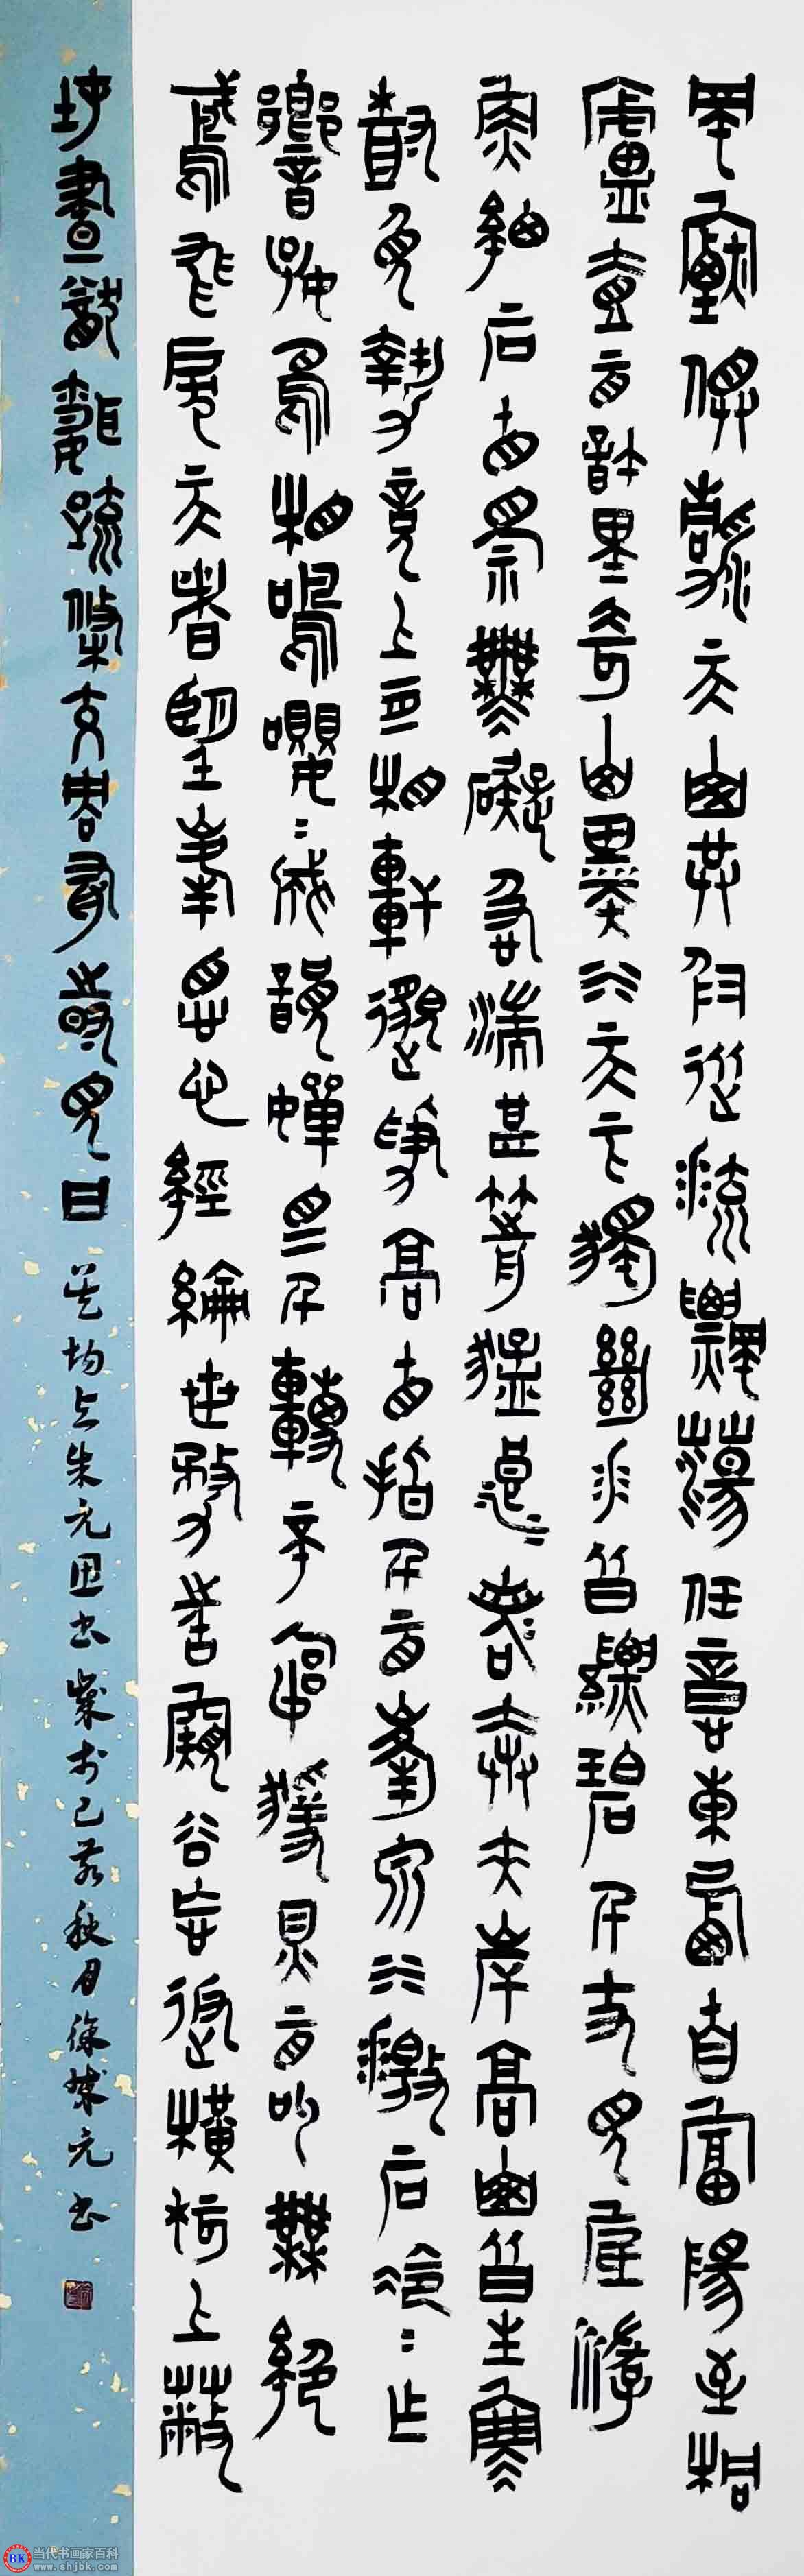 風煙俱淨天山共色從流飄蕩任意東西自富陽至桐
廬壹百許里奇山異水天下獨絕水皆縹碧千丈見底游
魚細石直視無礙急湍甚箭猛浪若奔夾岸高山皆生寒
樹負勢競上互相軒邈爭高直指千百成峯泉水激石泠泠作
響好鳥相鳴嚶嚶成韻蟬則千轉不窮猿則百叫無絕
鳶飛戾天者望峯息心經綸世務者窺谷忘返橫柯上蔽
在晝猶昏疏條交映有時見日 吴均与朱元思书 岁于己亥秋月徐元书
BK 当代书画家百科
www.shjbk.com